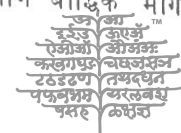 अ आ ™
इईउ ऊएऍ
ऐऑओ औअंअः
कखगघङ चछजझञ
टठडढण तथदधन
पफबभम यरलवश
षसह ळक्षज्ञ